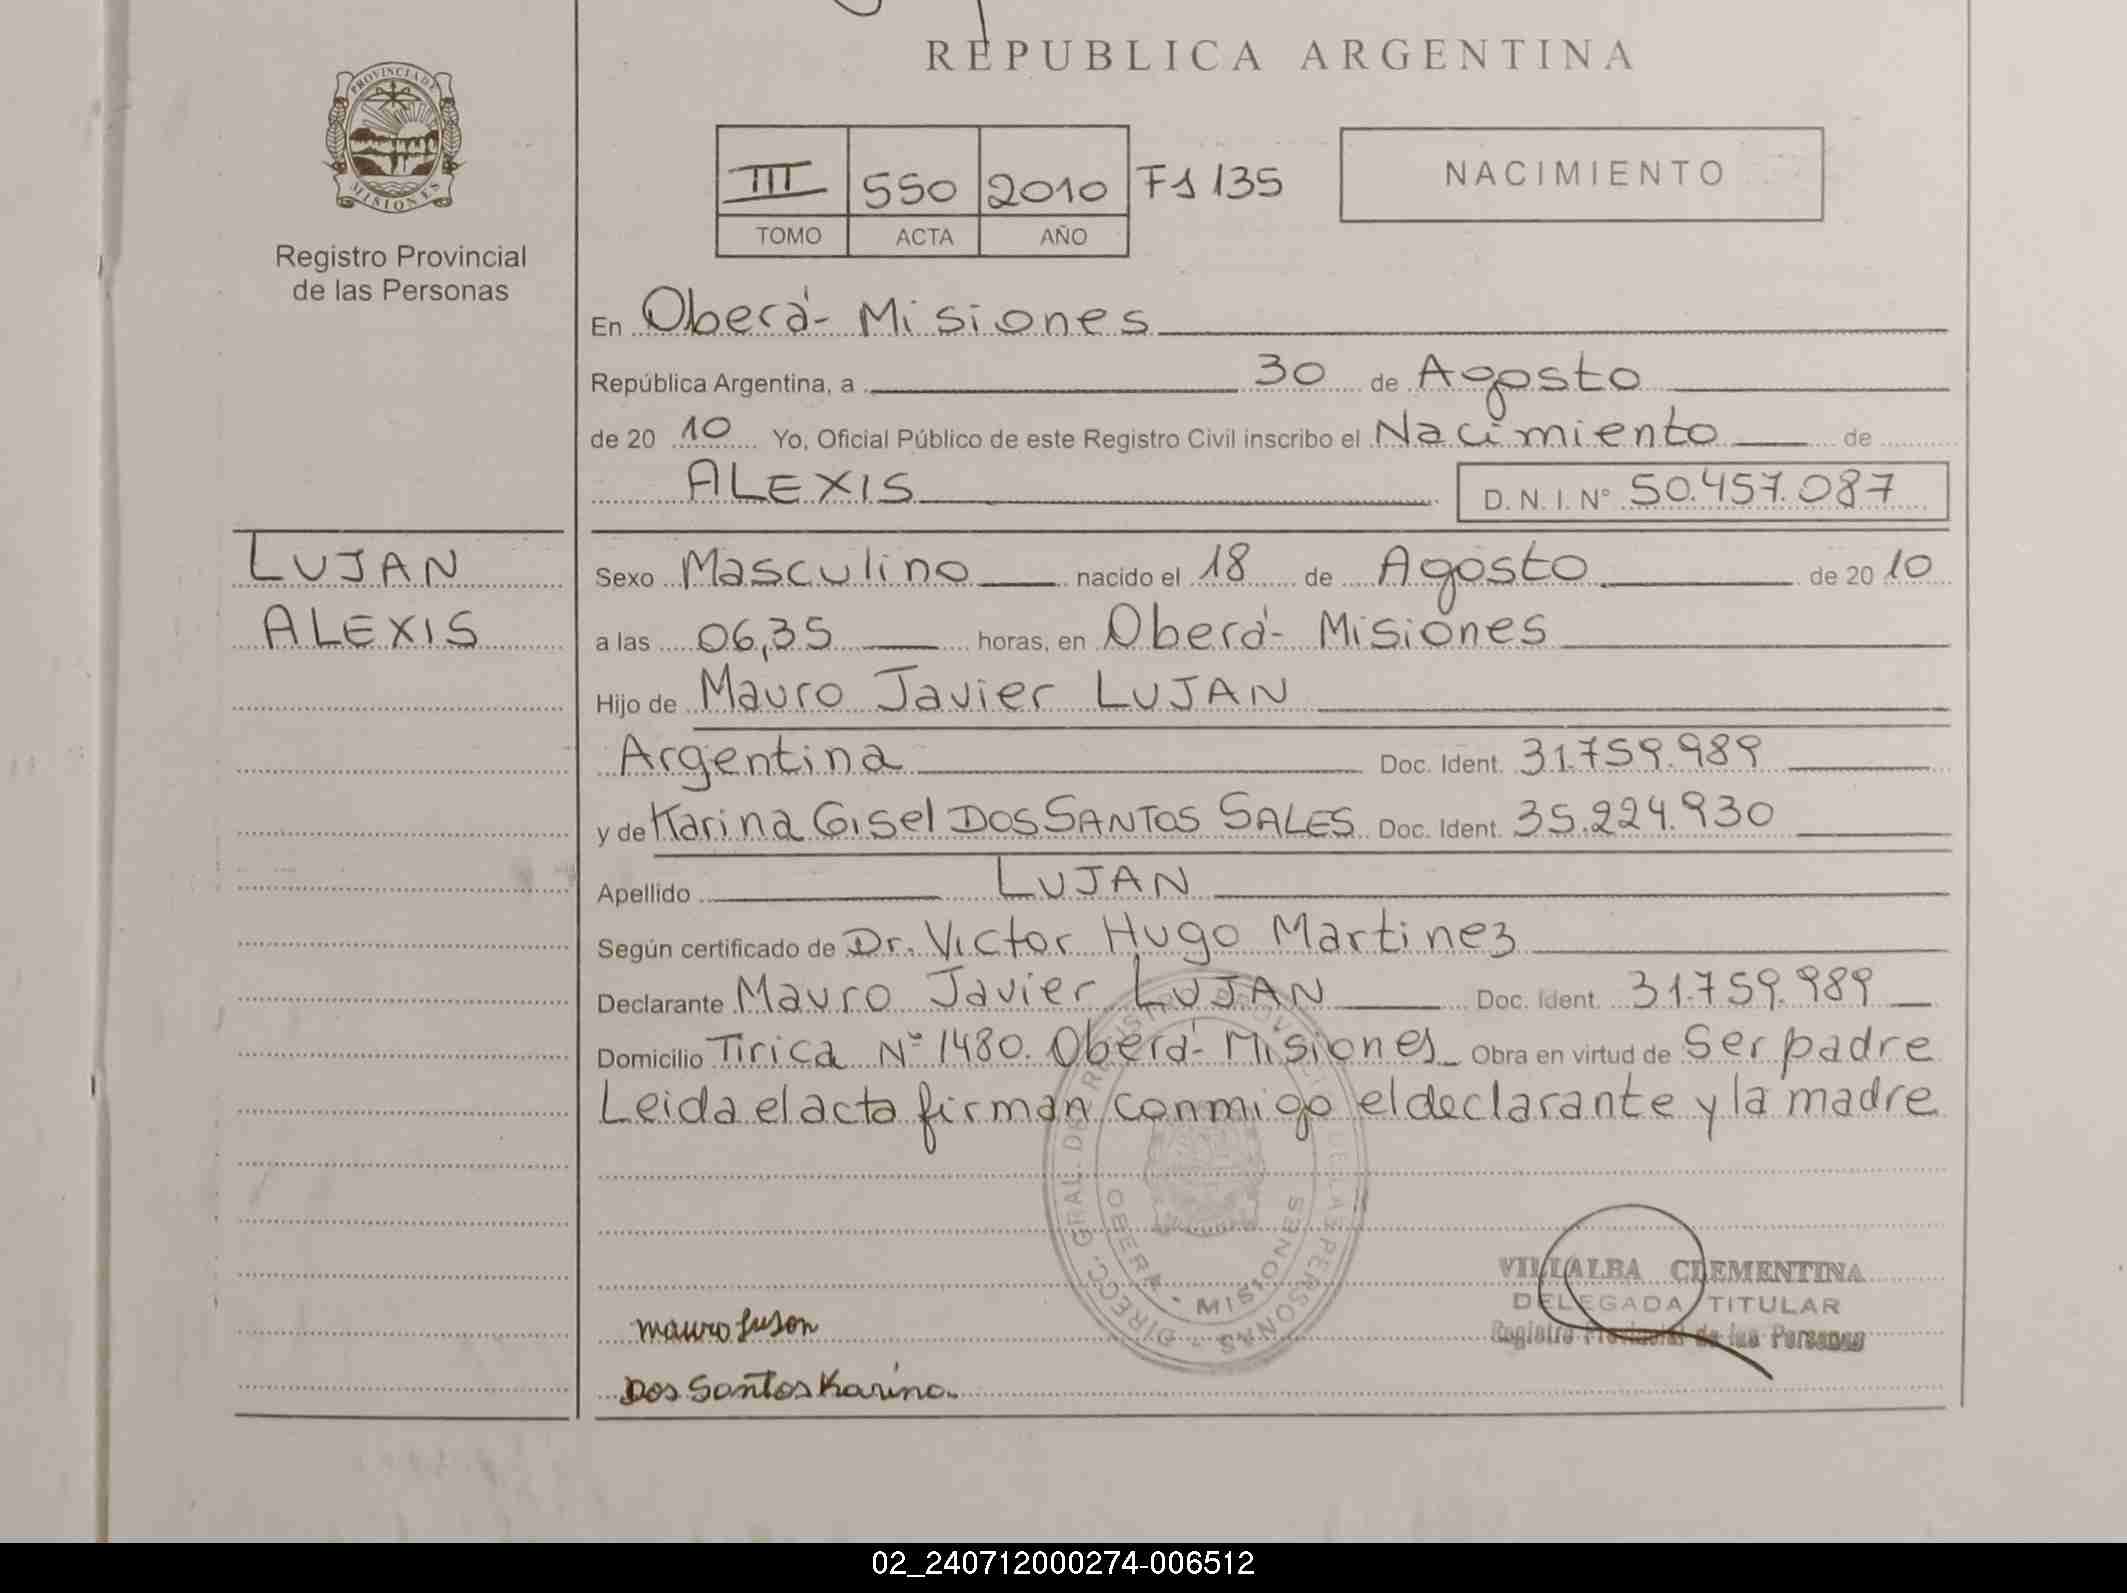 REPUBLICA ARGENTINA
PROVINCIA DE
MISIONES
Registro Provincial
de las Personas
III 550 2010 Fº 135
TOMO ACTA AÑO
NACIMIENTO
En Oberá - Misiones
República Argentina, a 30 de Agosto
de 20 10 Yo, Oficial Público de este Registro Civil inscribo el Nacimiento de
ALEXIS D. N. I. Nº 50.457.087
LUJAN
ALEXIS
Sexo Masculino nacido el 18 de Agosto de 20 10
a las 06,35 horas, en Oberá - Misiones
Hijo de Mauro Javier LUJAN
Argentina Doc. Ident. 31.759.989
y de Karina Gisel DOS SANTOS SALES Doc. Ident. 35.224.930
Apellido LUJAN
Según certificado de Dr. Victor Hugo Martinez
Declarante Mauro Javier LUJAN Doc. Ident. 31.759.989
Domicilio Tirica Nº 1480. Oberá - Misiones Obra en virtud de Ser padre
Leida el acta firman conmigo el declarante y la madre
DIRECC. GRAL. DEL REGISTRO PROVINCIAL DE LAS PERSONAS
OBERA - MISIONES
VILLALBA CLEMENTINA
DELEGADA TITULAR
Registro Provincial de las Personas
mauro lujan
Dos Santos Karina
02_240712000274-006512